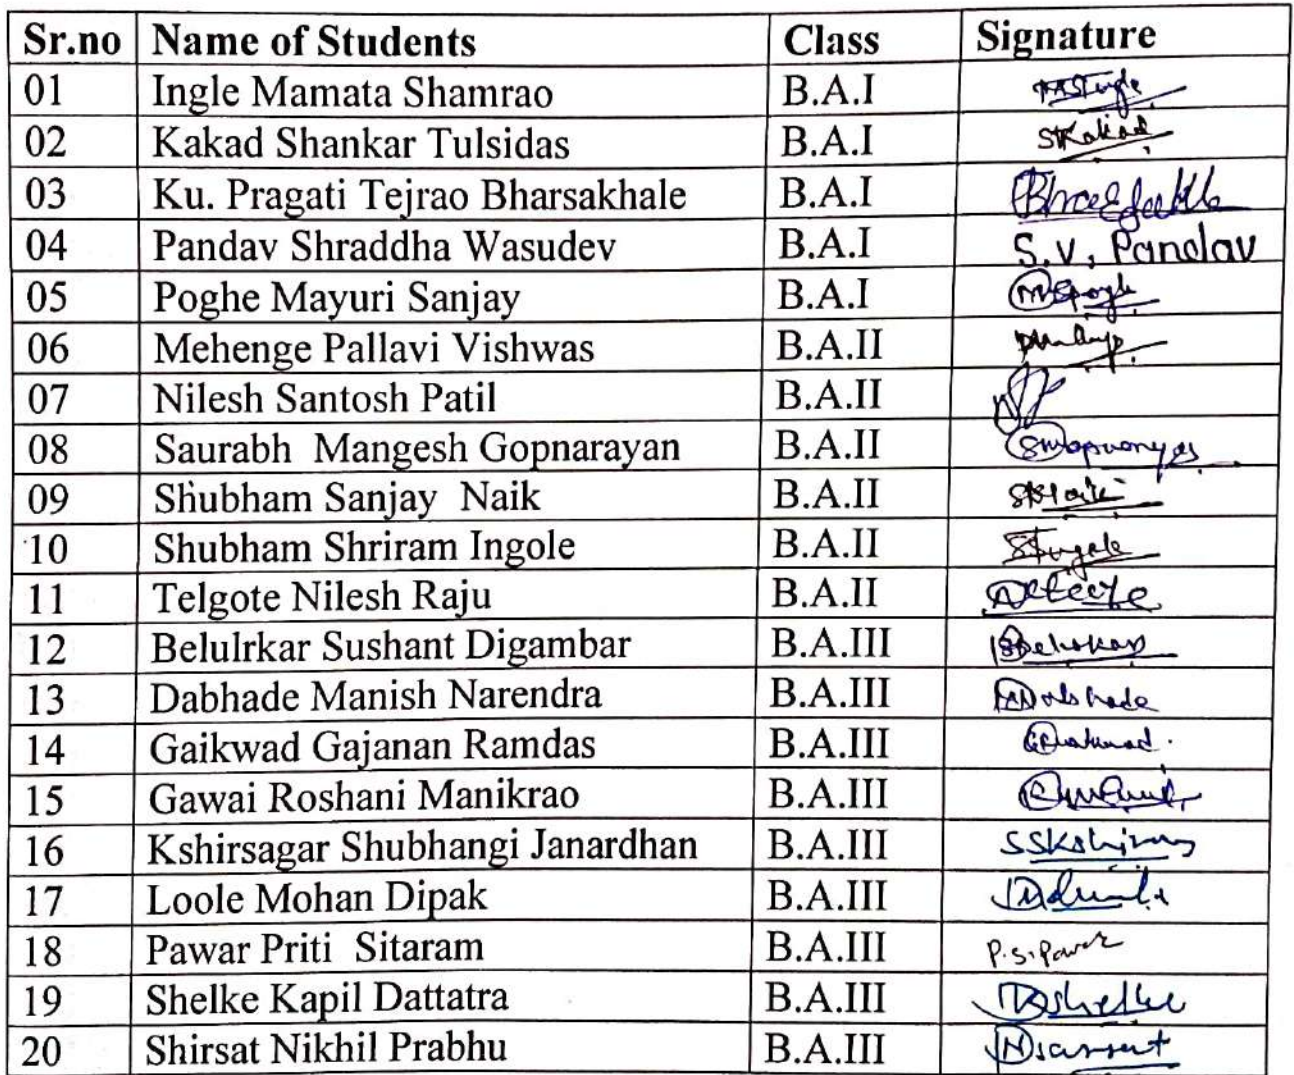 Sr.no Name of Students Class Signature
01 Ingle Mamata Shamrao B.A.I
02 Kakad Shankar Tulsidas B.A.I SKakad
03 Ku. Pragati Tejrao Bharsakhale B.A.I
04 Pandav Shraddha Wasudev B.A.I S.V. Pandav
05 Poghe Mayuri Sanjay B.A.I
06 Mehenge Pallavi Vishwas B.A.II
07 Nilesh Santosh Patil B.A.II
08 Saurabh Mangesh Gopnarayan B.A.II
09 Shubham Sanjay Naik B.A.II
10 Shubham Shriram Ingole B.A.II
11 Telgote Nilesh Raju B.A.II
12 Belulrkar Sushant Digambar B.A.III
13 Dabhade Manish Narendra B.A.III
14 Gaikwad Gajanan Ramdas B.A.III
15 Gawai Roshani Manikrao B.A.III
16 Kshirsagar Shubhangi Janardhan B.A.III
17 Loole Mohan Dipak B.A.III
18 Pawar Priti Sitaram B.A.III P.S.Pawar
19 Shelke Kapil Dattatra B.A.III
20 Shirsat Nikhil Prabhu B.A.III